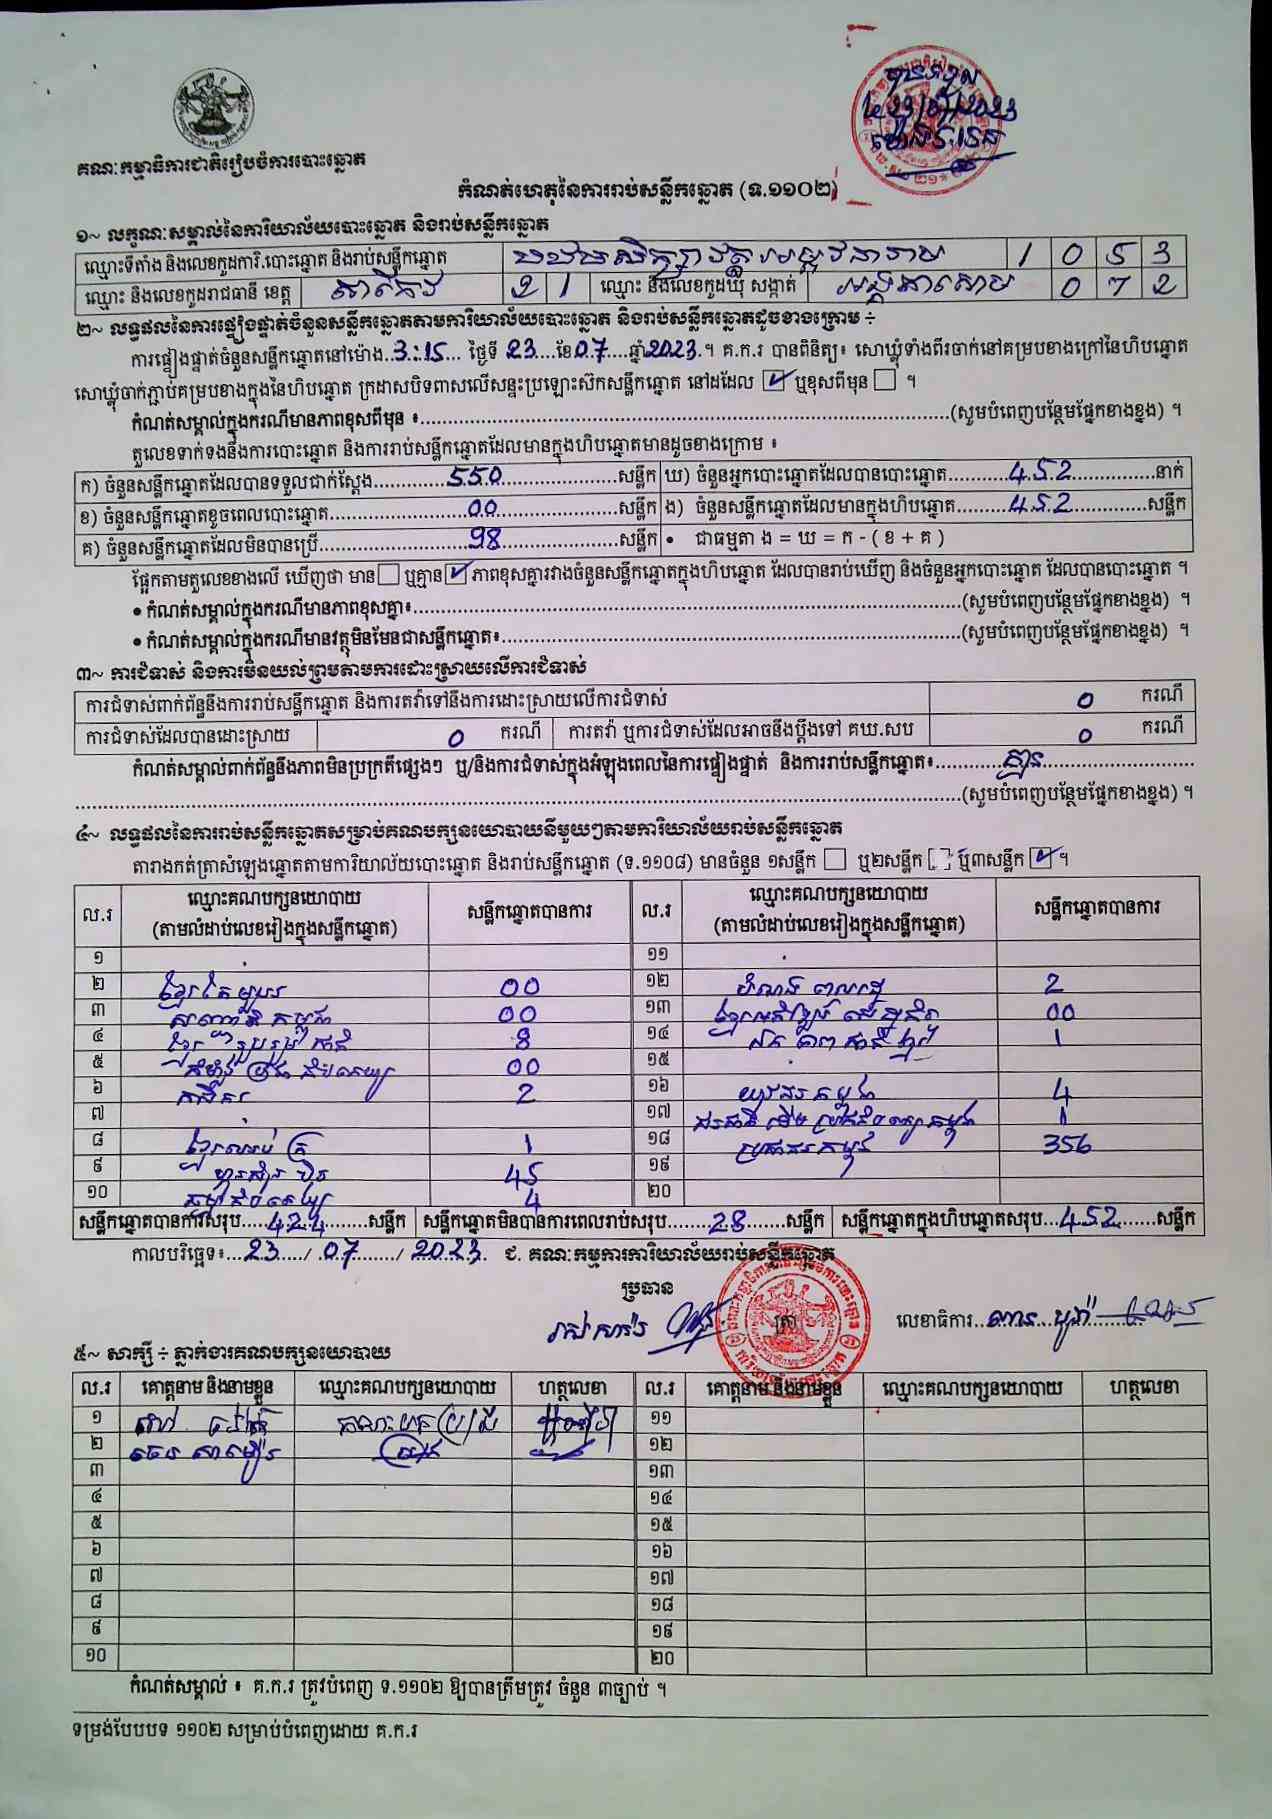 គណៈកម្មាធិការជាតិរៀបចំការបោះឆ្នោត
កំណត់ហេតុនៃការរាប់សន្លឹកឆ្នោត (ទ.១១០២)
១~ លក្ខណៈសម្គាល់នៃការិយាល័យបោះឆ្នោត និងរាប់សន្លឹកឆ្នោត
ឈ្មោះទីតាំង និងលេខកូដការិ.បោះឆ្នោត និងរាប់សន្លឹកឆ្នោត 1 0 5 3
ឈ្មោះ និងលេខកូដរាជធានី ខេត្ត តាកែវ 2 1 ឈ្មោះ និងលេខកូដឃុំ សង្កាត់ 0 7 2
២~ លទ្ធផលនៃការផ្ទៀងផ្ទាត់ចំនួនសន្លឹកឆ្នោតតាមការិយាល័យបោះឆ្នោត និងរាប់សន្លឹកឆ្នោតដូចខាងក្រោម ÷
ការផ្ទៀងផ្ទាត់ចំនួនសន្លឹកឆ្នោតនៅម៉ោង..3:15... ថ្ងៃទី 23....ខែ07....ឆ្នាំ2023.។ គ.ក.រ បានពិនិត្យ៖ សោឃ្លុំទាំងពីរចាក់នៅគម្របខាងក្រៅនៃហិបឆ្នោត
សោឃ្លុំចាក់ភ្ជាប់គម្របខាងក្នុងនៃហិបឆ្នោត ក្រដាសបិទពាសលើសន្ទះប្រឡោះស៊កសន្លឹកឆ្នោត នៅដដែល ☑ ឬខុសពីមុន ☐ ។
កំណត់សម្គាល់ក្នុងករណីមានភាពខុសពីមុន ៖......(សូមបំពេញបន្ថែមផ្នែកខាងខ្នង) ។
តួលេខទាក់ទងនឹងការបោះឆ្នោត និងការរាប់សន្លឹកឆ្នោតដែលមានក្នុងហិបឆ្នោតមានដូចខាងក្រោម ៖
ក) ចំនួនសន្លឹកឆ្នោតដែលបានទទួលជាក់ស្តែង......550......សន្លឹក ឃ) ចំនួនអ្នកបោះឆ្នោតដែលបានបោះឆ្នោត......452......នាក់
ខ) ចំនួនសន្លឹកឆ្នោតខូចពេលបោះឆ្នោត......00......សន្លឹក ង) ចំនួនសន្លឹកឆ្នោតដែលមានក្នុងហិបឆ្នោត......452......សន្លឹក
គ) ចំនួនសន្លឹកឆ្នោតដែលមិនបានប្រើ......98......សន្លឹក • ជាធម្មតា ង = ឃ = ក - ( ខ + គ )
ផ្អែកតាមតួលេខខាងលើ ឃើញថា មាន☐ ឬគ្មាន☑ ភាពខុសគ្នារវាងចំនួនសន្លឹកឆ្នោតក្នុងហិបឆ្នោត ដែលបានរាប់ឃើញ និងចំនួនអ្នកបោះឆ្នោត ដែលបានបោះឆ្នោត ។
• កំណត់សម្គាល់ក្នុងករណីមានភាពខុសគ្នា៖......(សូមបំពេញបន្ថែមផ្នែកខាងខ្នង) ។
• កំណត់សម្គាល់ក្នុងករណីមានវត្ថុមិនមែនជាសន្លឹកឆ្នោត៖......(សូមបំពេញបន្ថែមផ្នែកខាងខ្នង) ។
៣~ ការជំទាស់ និងការមិនយល់ព្រមតាមការដោះស្រាយលើការជំទាស់
ការជំទាស់ពាក់ព័ន្ធនឹងការរាប់សន្លឹកឆ្នោត និងការតវ៉ាទៅនឹងការដោះស្រាយលើការជំទាស់ 0 ករណី
ការជំទាស់ដែលបានដោះស្រាយ 0 ករណី ការតវ៉ា ឬការជំទាស់ដែលអាចនឹងប្តឹងទៅ គឃ.សប 0 ករណី
កំណត់សម្គាល់ពាក់ព័ន្ធនឹងភាពមិនប្រក្រតីផ្សេងៗ ឬ/និងការជំទាស់ក្នុងអំឡុងពេលនៃការផ្ទៀងផ្ទាត់ និងការរាប់សន្លឹកឆ្នោត៖......គ្មាន......
......(សូមបំពេញបន្ថែមផ្នែកខាងខ្នង) ។
៤~ លទ្ធផលនៃការរាប់សន្លឹកឆ្នោតសម្រាប់គណបក្សនយោបាយនីមួយៗតាមការិយាល័យរាប់សន្លឹកឆ្នោត
តារាងកត់ត្រាសំឡេងឆ្នោតតាមការិយាល័យបោះឆ្នោត និងរាប់សន្លឹកឆ្នោត (ទ.១១០៨) មានចំនួន ១សន្លឹក ☐ ឬ២សន្លឹក ☐ ឬ៣សន្លឹក ☑ ។
ល.រ ឈ្មោះគណបក្សនយោបាយ (តាមលំដាប់លេខរៀងក្នុងសន្លឹកឆ្នោត) សន្លឹកឆ្នោតបានការ ល.រ ឈ្មោះគណបក្សនយោបាយ (តាមលំដាប់លេខរៀងក្នុងសន្លឹកឆ្នោត) សន្លឹកឆ្នោតបានការ
១ ១១
២ ខ្មែរតែមួយ 00 ១២ 2
៣ សញ្ជាតិកម្ពុជា 00 ១៣ 00
៤ ខ្មែររួបរួមជាតិ 8 ១៤ 1
៥ 00 ១៥
៦ កសិករ 2 ១៦ យុវជនកម្ពុជា 4
៧ ១៧ 1
៨ 1 ១៨ ប្រជាជនកម្ពុជា 356
៩ ហ៊្វុនស៊ិនប៉ិច 45 ១៩
១០ ធម្មាធិបតេយ្យ 4 ២០
សន្លឹកឆ្នោតបានការសរុប.....424......សន្លឹក សន្លឹកឆ្នោតមិនបានការពេលរាប់សរុប......28......សន្លឹក សន្លឹកឆ្នោតក្នុងហិបឆ្នោតសរុប...452......សន្លឹក
កាលបរិច្ឆេទ៖...23..../..07....../ 2023. ជ. គណៈកម្មការការិយាល័យរាប់សន្លឹកឆ្នោត
ប្រធាន
លេខាធិការ
៥~ សាក្សី ÷ ភ្នាក់ងារគណបក្សនយោបាយ
ល.រ គោត្តនាម និងនាមខ្លួន ឈ្មោះគណបក្សនយោបាយ ហត្ថលេខា ល.រ គោត្តនាម និងនាមខ្លួន ឈ្មោះគណបក្សនយោបាយ ហត្ថលេខា
១ ១១
២ ១២
៣ ១៣
៤ ១៤
៥ ១៥
៦ ១៦
៧ ១៧
៨ ១៨
៩ ១៩
១០ ២០
កំណត់សម្គាល់ ៖ គ.ក.រ ត្រូវបំពេញ ទ.១១០២ ឱ្យបានត្រឹមត្រូវ ចំនួន ៣ច្បាប់ ។
ទម្រង់បែបបទ ១១០២ សម្រាប់បំពេញដោយ គ.ក.រ